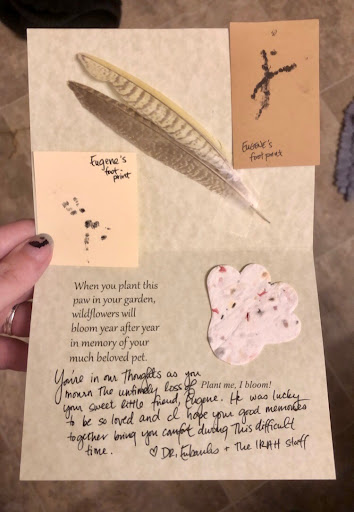 Eugene's
foot
print
EUGENE'S
footprint
When you plant this
paw in your garden,
wildflowers will
bloom year after year
in memory of your
much beloved pet.
Plant me, I bloom!
You're in our thoughts as you
mourn the untimely loss of
your sweet little friend, Eugene. He was lucky
to be so loved and I hope your good memories
together bring you comfort during this difficult
time. ♡ DR. Eubanks + The IRAH staff